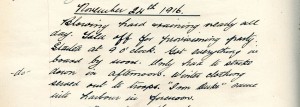 November 24th 1916.
Blowing hard raining nearly all
day. Told off for provisioning party.
Started at 9 o'clock. Got everything on
board by noon. Only had to strike
-do-
down in afternoon. Winter clothing
served out to troops. "Iron Duke" came
into harbour in forenoon.